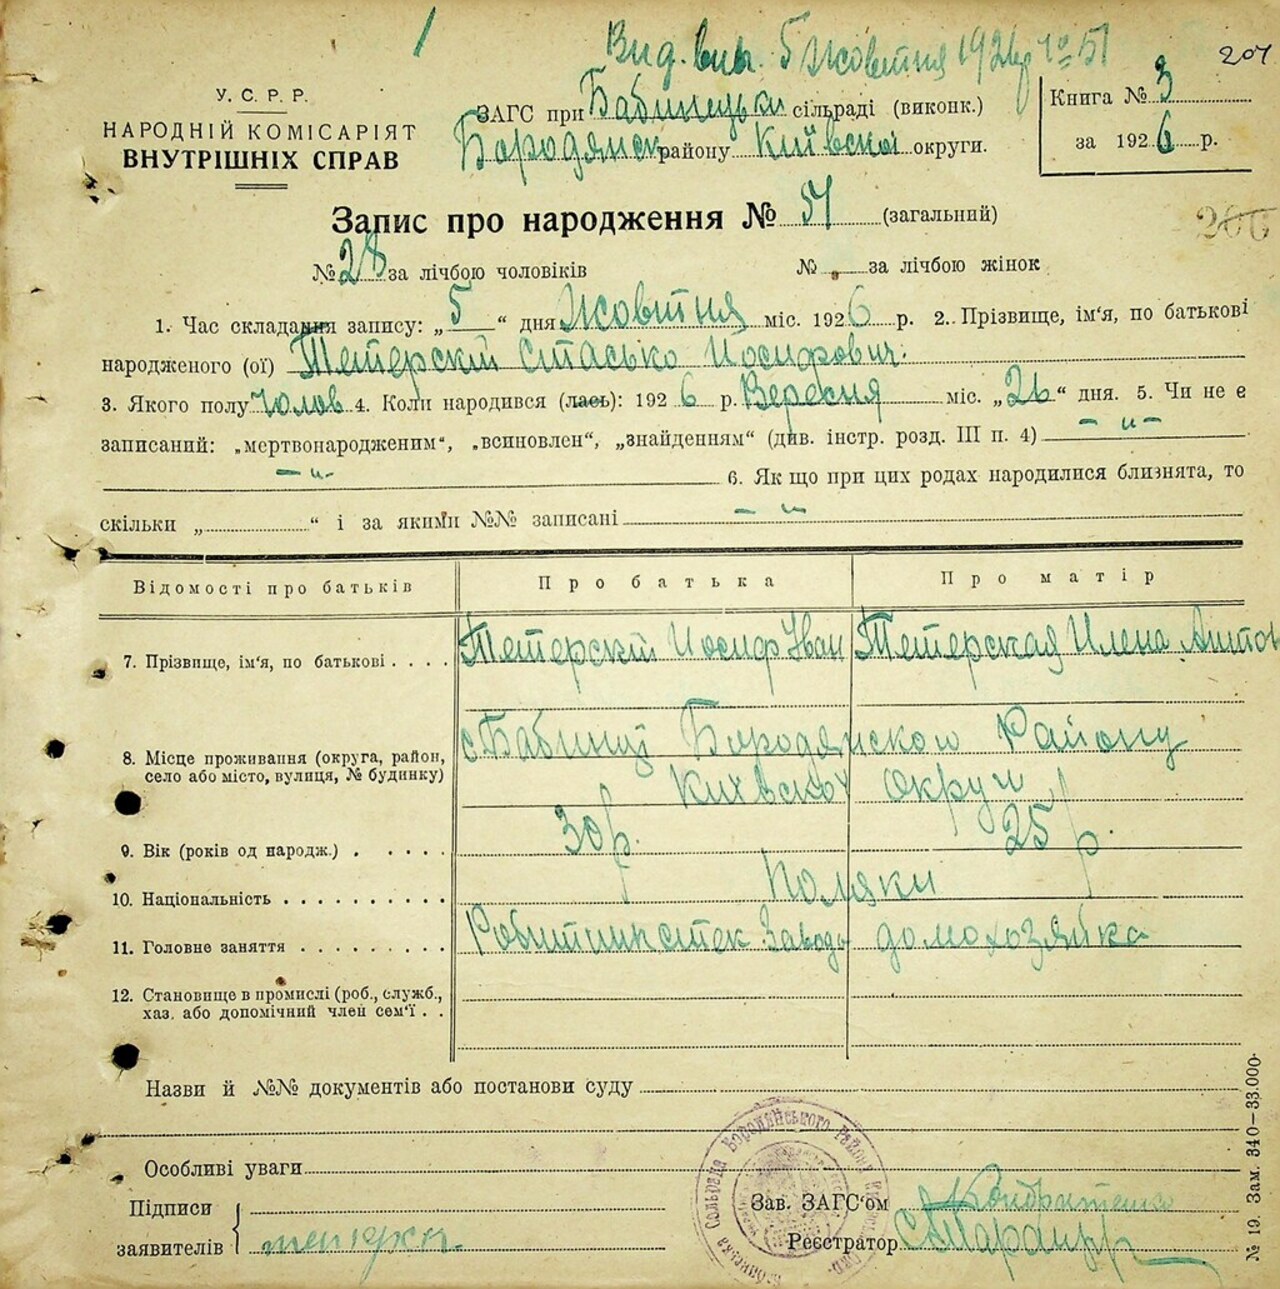 Вид. вип. 5 Жовтня 1926 р № 51
207
У. С. Р. Р.
НАРОДНІЙ КОМІСАРІЯТ
ВНУТРІШНІХ СПРАВ
ЗАГС при Бабинецькій сільраді (виконк.)
Бородянск району Київскої округи.
Книга № 3
за 1926 р.
Запис про народження № 51 (загальний)
206
№ 28 за лічбою чоловіків № за лічбою жінок
1. Час складання запису: „5“ дня Жовтня міс. 1926 р. 2. Прізвище, ім'я, по батькові
народженого (ої) Тетерскій Стасько Йосифович.
3. Якого полу чолов 4. Коли народився (лась): 1926 р. Вересня міс. „26“ дня. 5. Чи не є
записаний: „мертвонародженим“, „всиновлен“, „знайденням“ (див. інстр. розд. III п. 4) – „ –
– „ – 6. Як що при цих родах народилися близнята, то
скільки „ “ і за якими №№ записані – „
Відомості про батьків Про батька Про матір
7. Прізвище, ім'я, по батькові . . . . Тетерскій Йосиф Іван Тетерская Илена Антов
8. Місце проживання (округа, район, село або місто, вулиця, № будинку) с Бабинці Бородянского Району
Київскої округи
9. Вік (років од народж.) . . . . . 30 р. 25 р.
10. Національність . . . . . . . . . . Поляки
11. Головне заняття . . . . . . . . . Робітник стек. Заводу домохозяйка
12. Становище в промислі (роб., служб.,
хаз. або допомічний член сем'ї . .
Назви й №№ документів або постанови суду
Особливі уваги
Підписи
заявителів
Зав. ЗАГС'ом Кондратенко
Реєстратор
№ 19. Зам. 340–33.000.